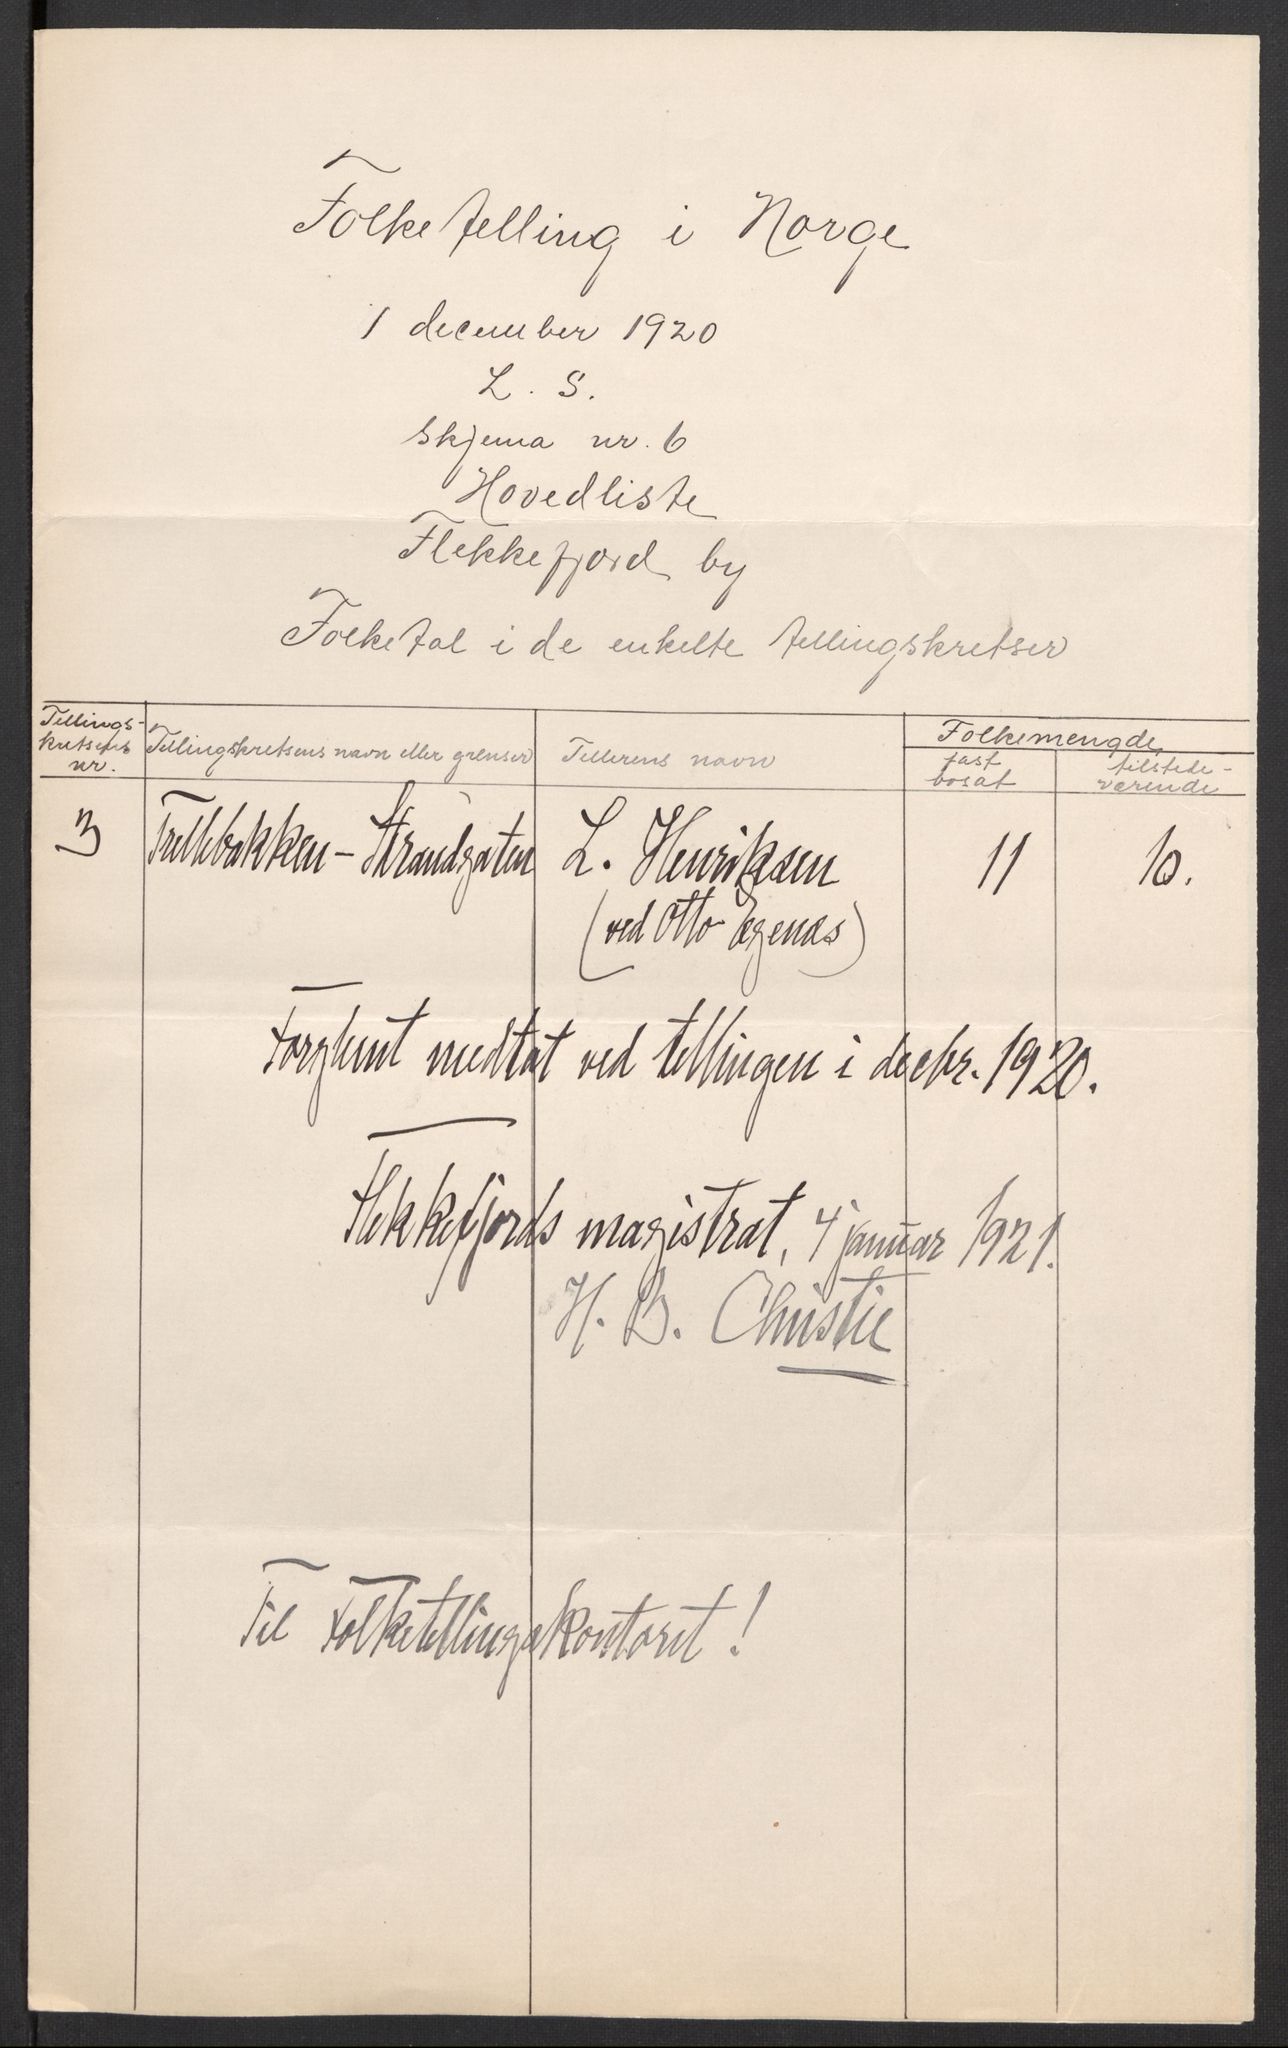 Folketelling i Norge
1 december 1920
L. S.
Skjema nr. 6
Hovedliste
Flekkefjord by
Folketal i de enkelte tellingskretser
Tellings-
kretsens
nr.
Tellingskretsens navn eller grenser
Tellerens navn
Folkemengde
fast
bosat
tilstede-
værende
3 Trellebakken - Strandgaten L. Henriksen 11 10.
(ved Otto Egenæs)
Forglemt medtat ved tellingen i decbr. 1920.
Flekkefjords magistrat, 4 januar 1921.
H. B. Christie
Til Folketellingskontoret!